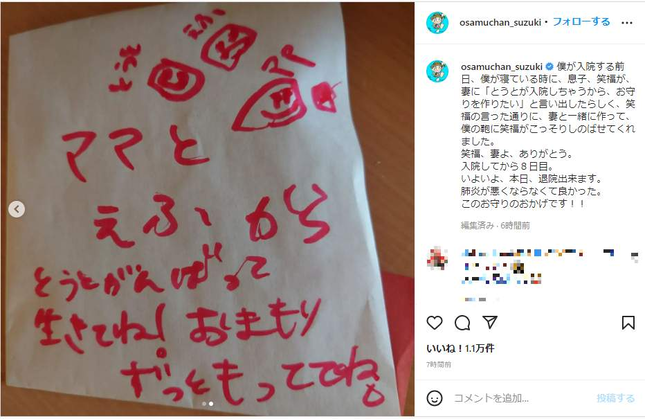 とうと
えふ
ママ
ママと
えふから
とうとがんばって
生きてね！おまもり
ずっともっててね。
osamuchan_suzuki・フォローする
osamuchan_suzuki 僕が入院する前
日、僕が寝ている時に、息子、笑福が、
妻に「とうとが入院しちゃうから、お守
りを作りたい」と言い出したらしく、笑
福の言った通りに、妻と一緒に作って、
僕の鞄に笑福がこっそりしのばせてくれ
ました。
笑福、妻よ、ありがとう。
入院してから８日目。
いよいよ、本日、退院出来ます。
肺炎が悪くならなくて良かった。
このお守りのおかげです！！
編集済み・6時間前
いいね！1.1万件
7時間前
コメントを追加...
投稿する